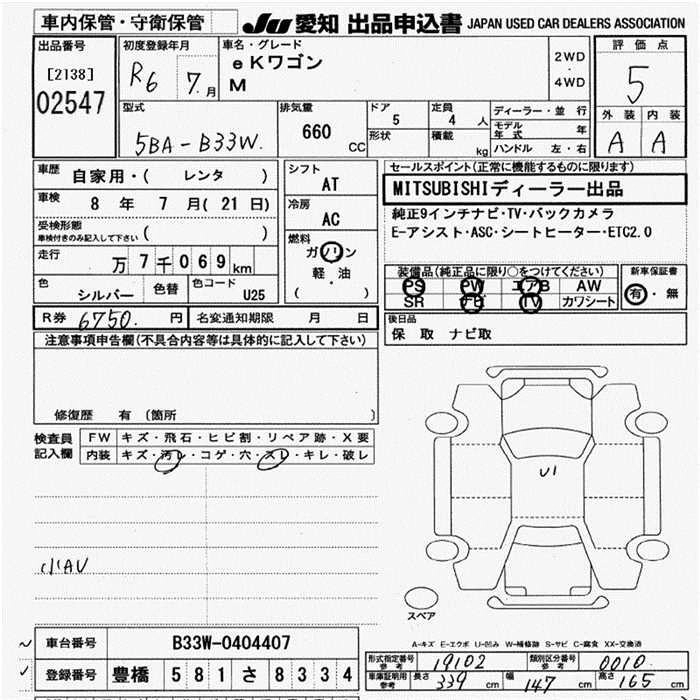 車内保管・守衛保管 JU 愛知 出品申込書 JAPAN USED CAR DEALERS ASSOCIATION
出品番号 初度登録年月 車名・グレード 評価点
[2138] R6 7.月 eKワゴン 2WD
02547 M ・4WD 5
型式 排気量 ドア 定員 ディーラー・並行 外装 内装
5BA-B33W. 660 CC 5 4人 モデル年式 年 A A
形状 積載 kg ハンドル 左・右
車歴 自家用・( レンタ ) シフト AT セールスポイント(正常に機能するものに限ります)
車検 8年 7月(21日) 冷房 AC MITSUBISHIディーラー出品
受検形態 車検付きのみ記入して下さい ( ) 純正9インチナビ・TV・バックカメラ
走行 万7千069km 燃料 ガソリン E-アシスト・ASC・シートヒーター・ETC2.0
軽・油 ( )
色 シルバー 色替 色コード U25
装備品(純正品に限り○をつけてください) 新車保証書
PS PW エアB AW 有・無
SR ナビ TV カワシート
R券 6750. 円 名変通知期限 月 日 後日品
保 取 ナビ取
注意事項申告欄(不具合内容等は具体的に記入して下さい)
修復歴 有 〔箇所 〕
検査員記入欄 FW キズ・飛石・ヒビ割・リペア跡・X要
内装 キズ・汚レ・コゲ・穴・スレ・キレ・破レ
U1
小AU
スペア
A-キズ E-エクボ U-凹み W-補修跡 S-サビ C-腐食 XX-交換済
車台番号 B33W-0404407
登録番号 豊橋 581 さ 8334
形式指定番号 参考 19102 類別区分番号 参考 0010.
車庫証明用 参考 長さ 339 cm 幅 147 cm 高さ 165 cm